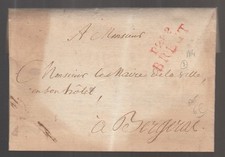 A Monsieur
BREST
Monsieur le Maire de la ville
en son hôtel,
à Bergerac